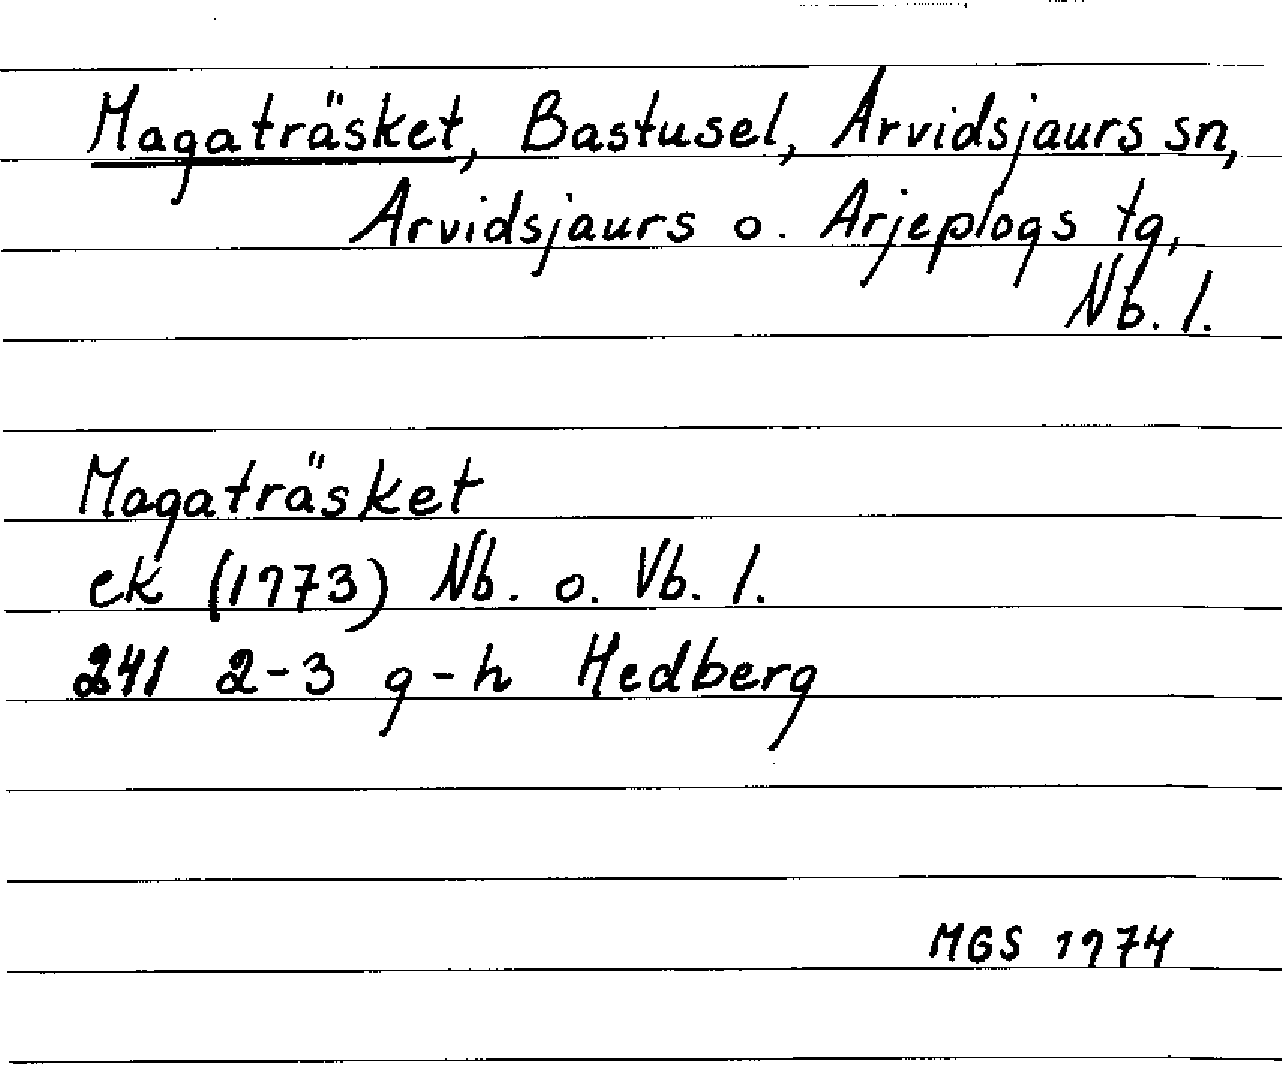 Magaträsket, Bastusel, Arvidsjaurs sn,
Arvidsjaurs o. Arjeplogs tg,
Nb. l.
Magaträsket
ek (1973) Nb. o. Vb. l.
241 2-3 g-h Hedberg
MGS 1974